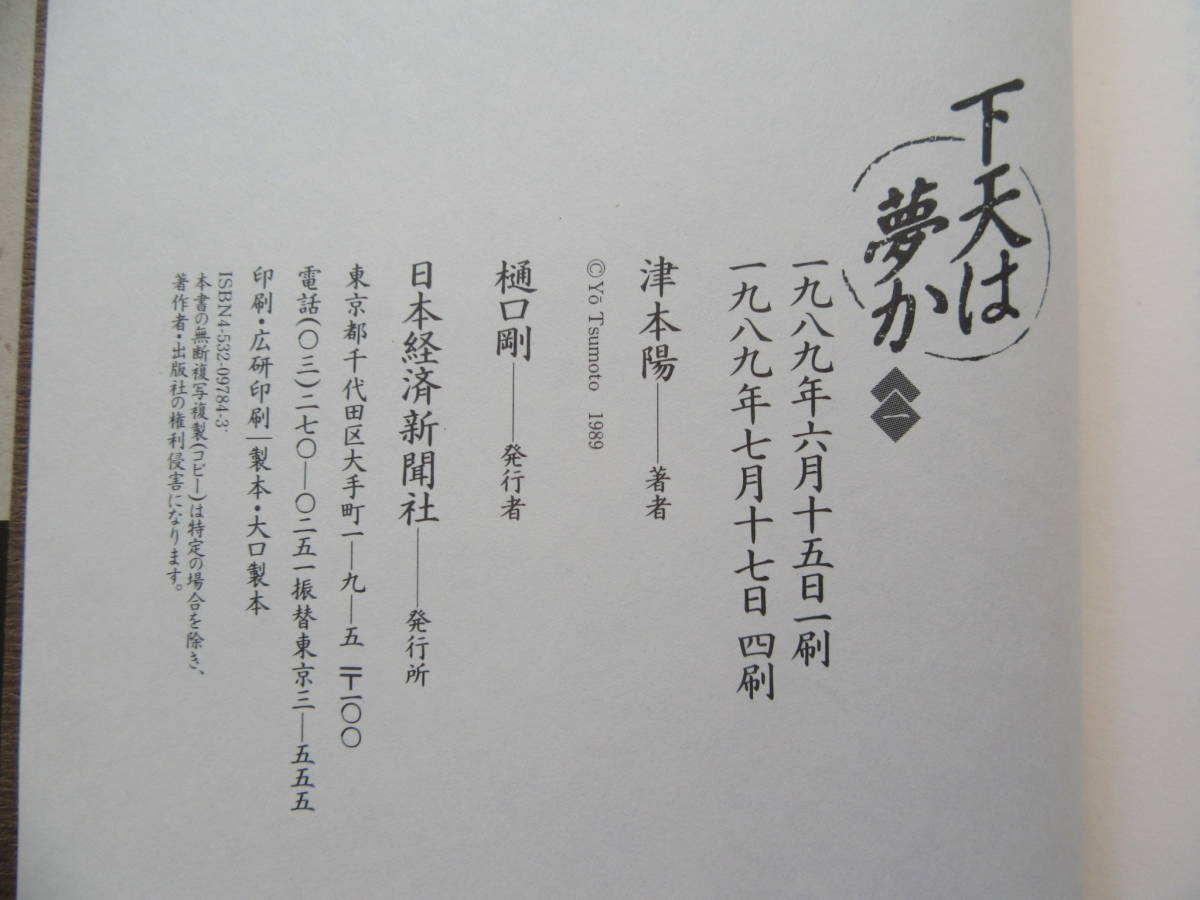 下天は
夢か
一
一九八九年六月十五日一刷
一九八九年七月十七日四刷
津本陽——著者
©Yō Tsumoto 1989
樋口剛——発行者
日本経済新聞社——発行所
東京都千代田区大手町一—九—五 〒一〇〇
電話(〇三)二七〇—〇二五一振替東京三—五五五
印刷・広研印刷｜製本・大口製本
ISBN4-532-09784-3
本書の無断複写複製(コピー)は特定の場合を除き、
著作者・出版社の権利侵害になります。